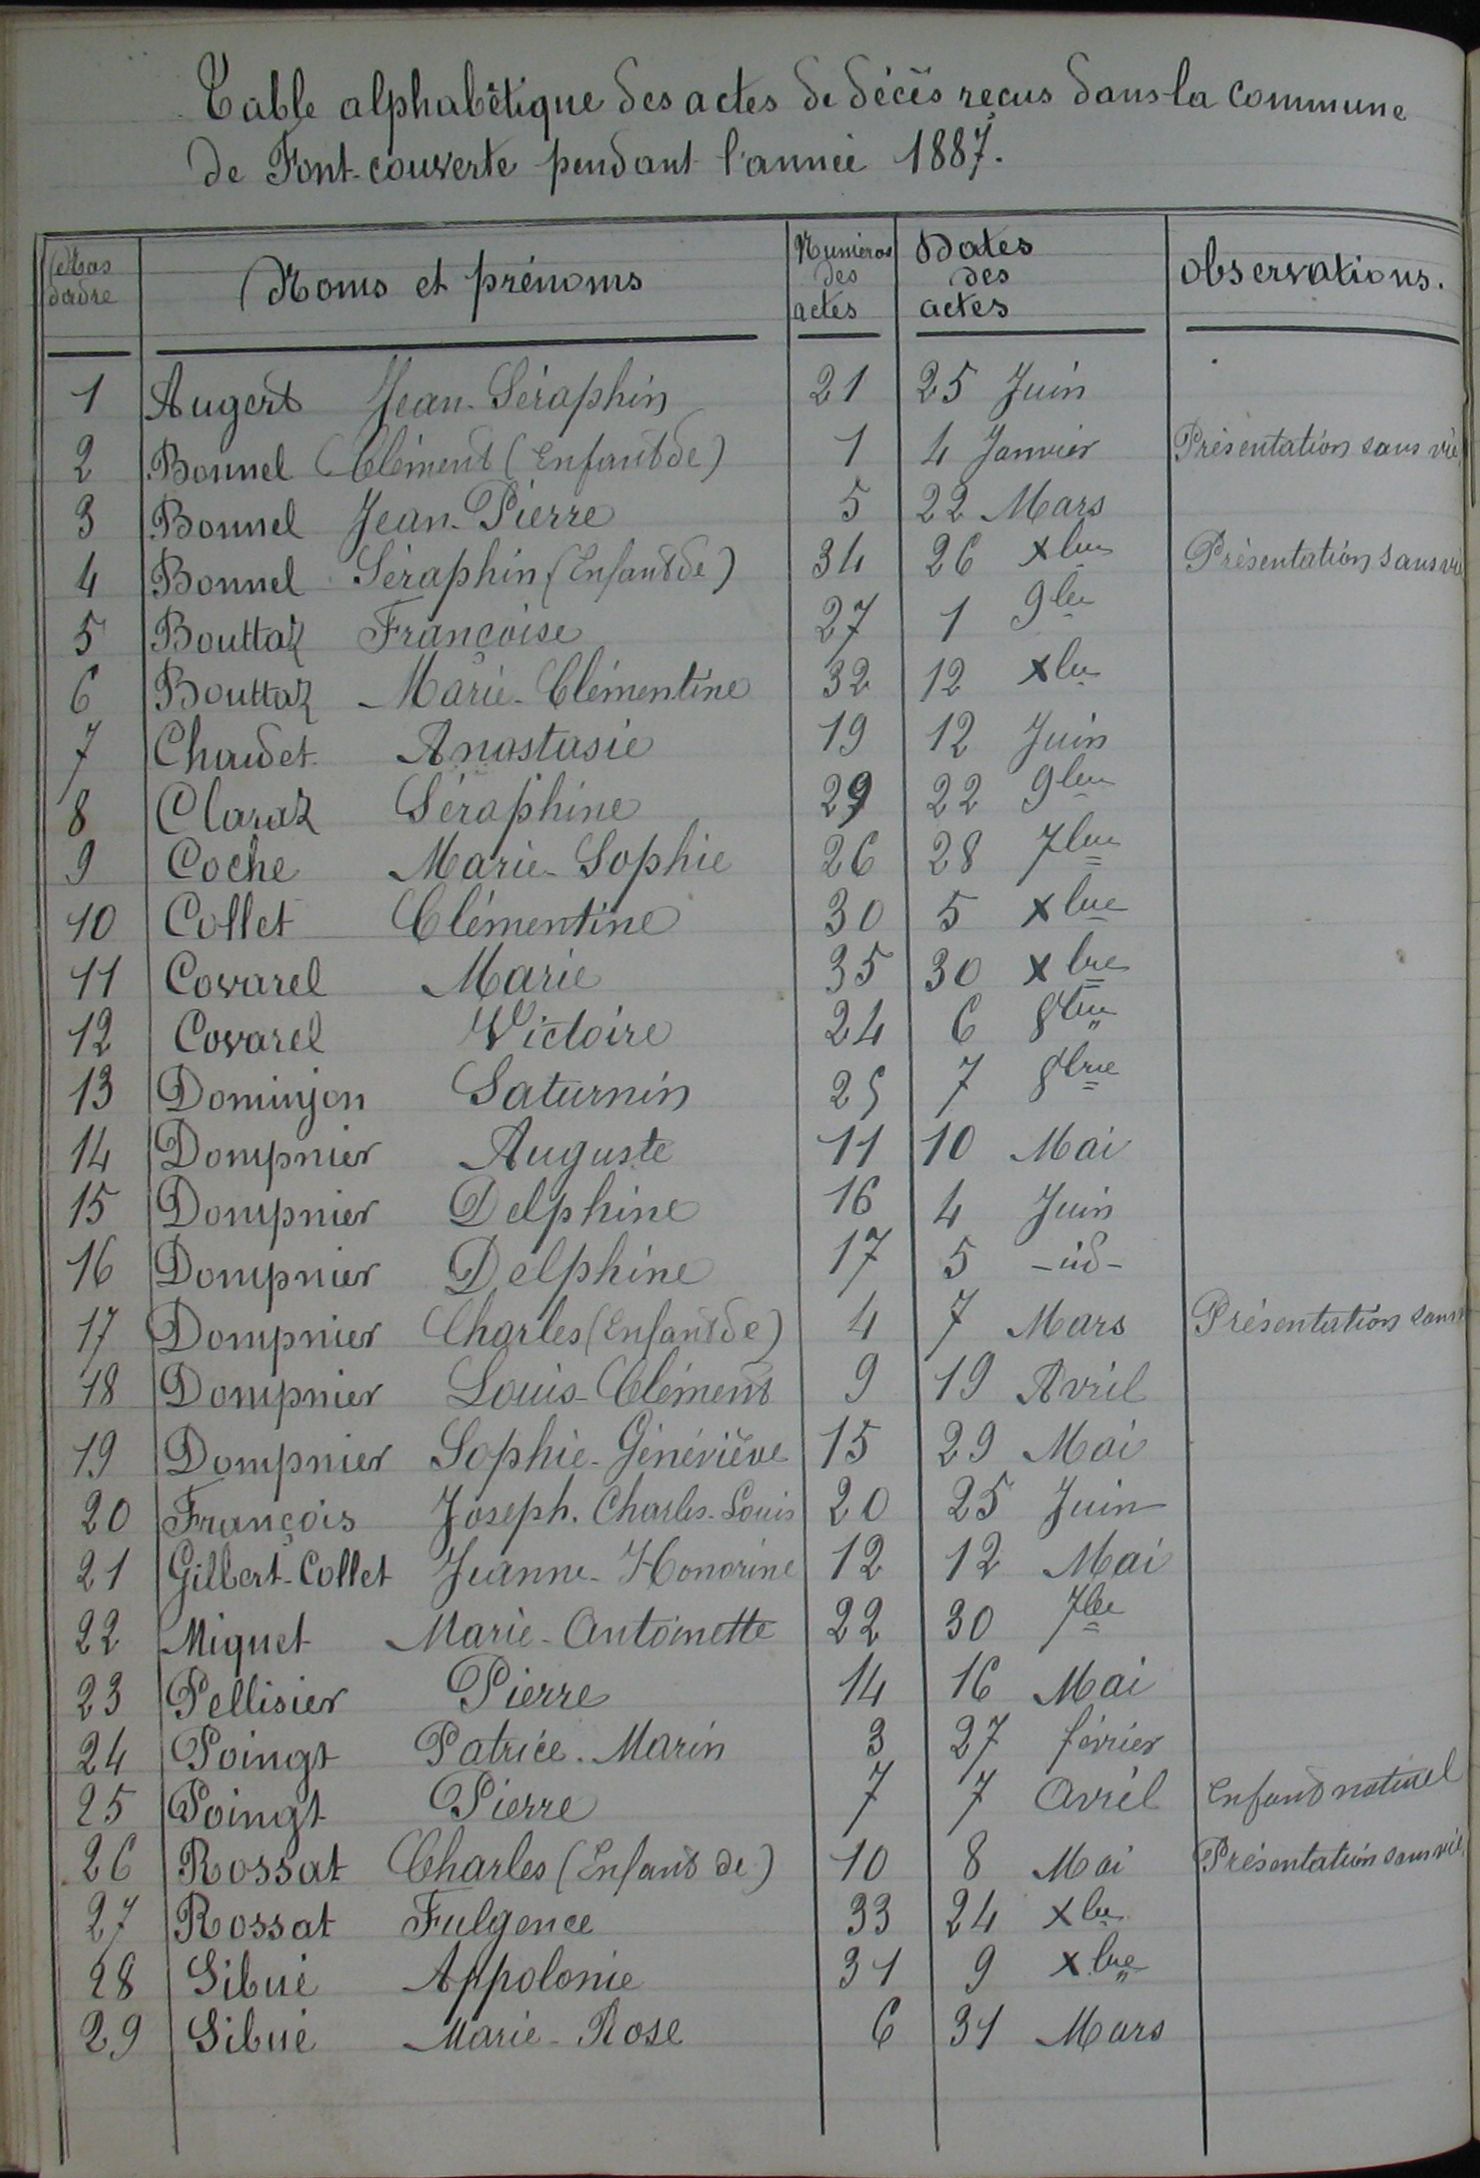 Table alphabétique des actes de décès reçus dans la commune
de Font-couverte pendant l'année 1887.
Nos d'ordre | Noms et prénoms | Numéros des actes | Dates des actes | Observations.
1 Augert Jean-Séraphin 21 25 Juin
2 Bonnel Clément (Enfant de) 1 4 Janvier Présentation sans vie
3 Bonnel Jean-Pierre 5 22 Mars
4 Bonnel Séraphin (Enfant de) 34 26 xbre Présentation sans vie
5 Bouttaz Françoise 27 1 9bre
6 Bouttaz Marie-Clémentine 32 12 xbre
7 Chaudet Anastasie 19 12 Juin
8 Claraz Séraphine 29 22 9bre
9 Coche Marie-Sophie 26 28 7bre
10 Collet Clémentine 30 5 xbre
11 Covarel Marie 35 30 xbre
12 Covarel Victoire 24 6 8bre
13 Dominjon Saturnin 25 7 8bre
14 Dompnier Auguste 11 10 Mai
15 Dompnier Delphine 16 4 Juin
16 Dompnier Delphine 17 5 -id-
17 Dompnier Charles (Enfant de) 4 7 Mars Présentation sans
18 Dompnier Louis-Clément 9 19 Avril
19 Dompnier Sophie-Généviève 15 29 Mai
20 François Joseph-Charles-Louis 20 25 Juin
21 Gilbert-Collet Jeanne-Honorine 12 12 Mai
22 Miquet Marie-Antoinette 22 30 7bre
23 Pellisier Pierre 14 16 Mai
24 Poingt Patrice-Marin 3 27 février
25 Poingt Pierre 7 7 Avril Enfant naturel
26 Rossat Charles (Enfant de) 10 8 Mai Présentation sans vie
27 Rossat Fulgence 33 24 xbre
28 Sibué Appolonie 31 9 xbre
29 Sibué Marie-Rose 6 31 Mars